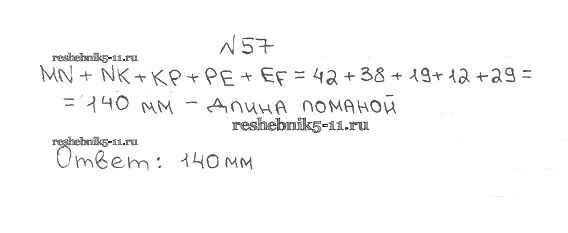 №57
reshebnik5-11.ru
MN + NK + KP + PE + EF = 42 + 38 + 19 + 12 + 29 =
= 140 мм – длина ломаной
reshebnik5-11.ru
reshebnik5-11.ru
Ответ: 140 мм